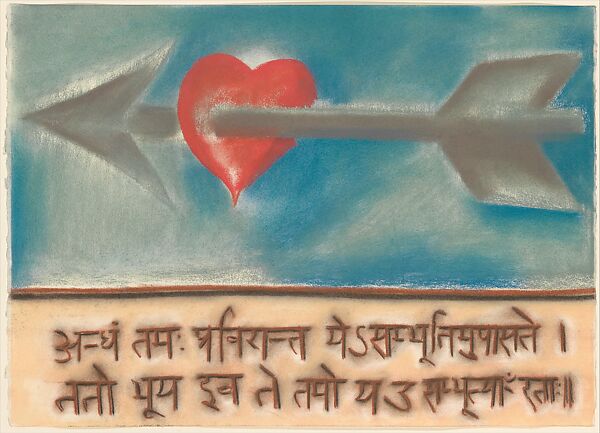 अन्धं तमः प्रविशन्ति येऽसम्भूतिमुपासते ।
ततो भूय इव ते तमो य उ सम्भूत्याँ रताः॥